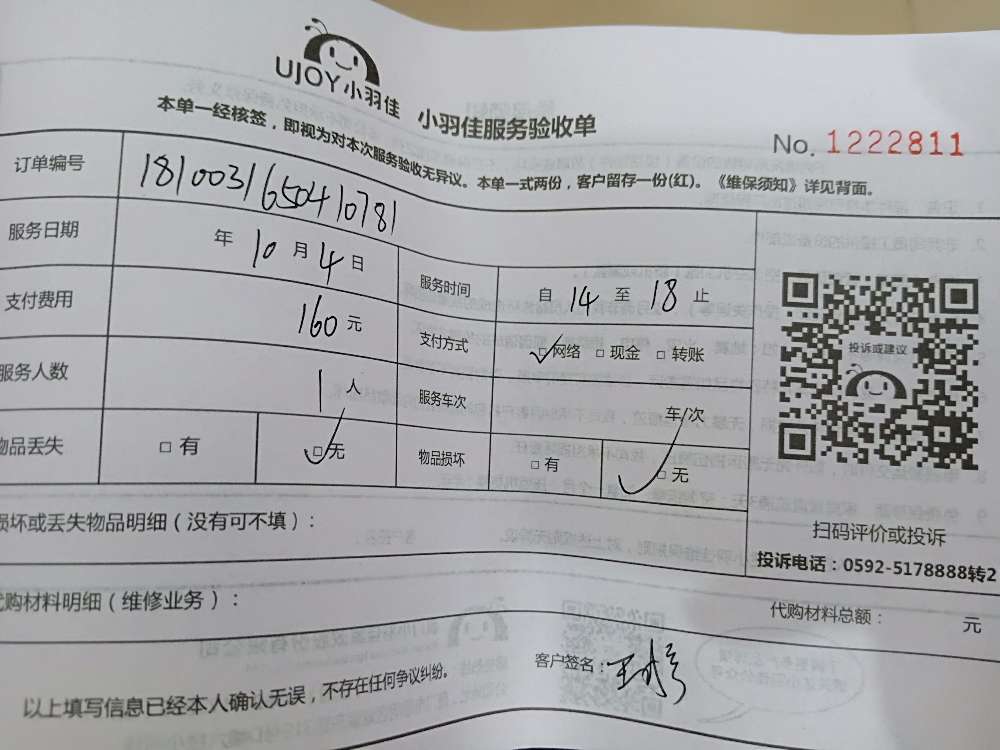 UJOY小羽佳 小羽佳服务验收单
No. 1222811
本单一经核签，即视为对本次服务验收无异议。本单一式两份，客户留存一份(红)。《维保须知》详见背面。
订单编号 1810031650410781
服务日期 年 10 月 4 日 服务时间 自 14 至 18 止
支付费用 160 元 支付方式 □网络 □现金 □转账
服务人数 1 人 服务车次 车/次
物品丢失 □有 □无 物品损坏 □有 □无
投诉或建议
扫码评价或投诉
投诉电话：0592-5178888转2
损坏或丢失物品明细（没有可不填）：
代购材料明细（维修业务）： 代购材料总额： 元
以上填写信息已经本人确认无误，不存在任何争议纠纷。 客户签名：